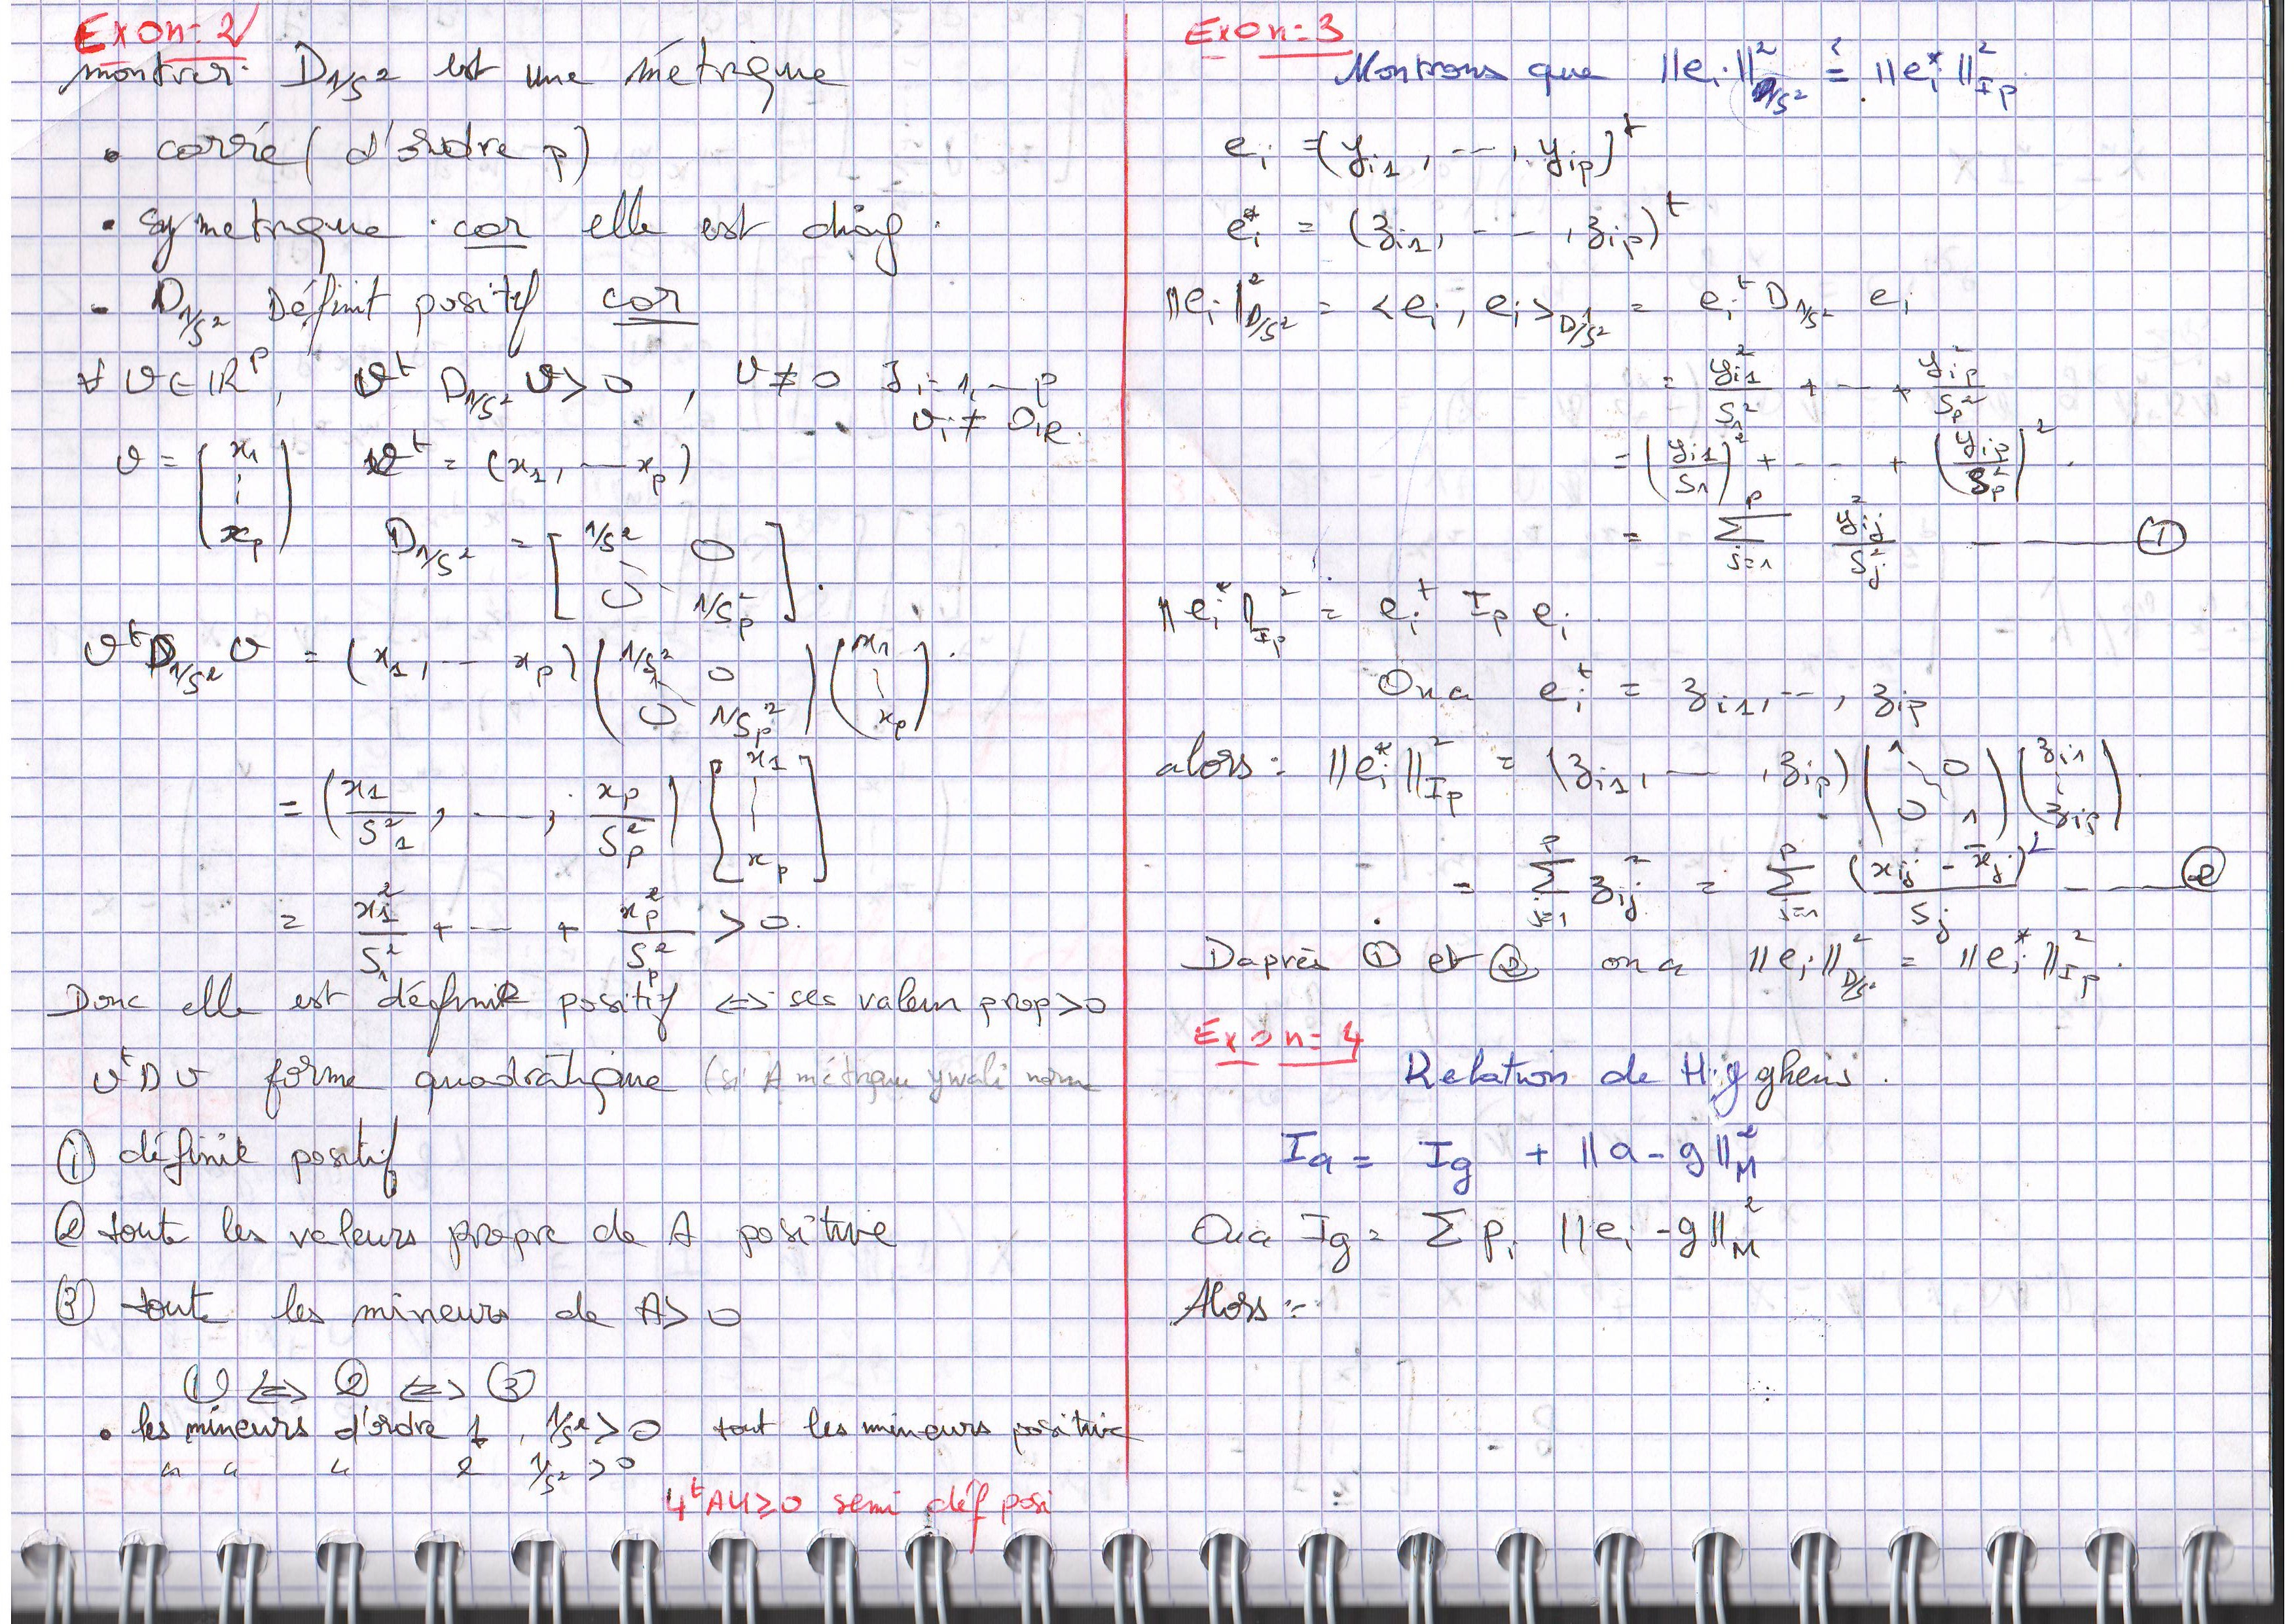 Exo n=2
montrer D1/s² est une métrique
• carré (d'ordre p)
• symetrique car elle est diag.
- D1/s² Définit positif car
∀ v ∈ IR^p, v^t D1/s² v > 0, v ≠ 0 ∃ i=1,—p
vi ≠ 0IR.
v = (x1 ⋮ xp) v^t = (x1, --- xp)
D1/s² = [1/s² 0 0 1/sp²].
v^t D1/s² v = (x1, --- xp) (1/s1² 0 0 1/sp²) (x1 | xp).
= (x1/s1², —, xp/sp²) [x1 | xp]
= x1²/s1² + --- + xp²/sp² > 0.
Donc elle est définit positif <=> ses valeur prop > 0
v^t D v forme quadratique (si A métrique ywali norme
① définit positif
② toute les valeurs propre de A positive
③ toute les mineurs de A > 0
① <=> ② <=> ③
• les mineurs d'ordre 1, 1/s² > 0 tout les mineurs positive
" " " 2 1/s² > 0
4^t A4 ≥ 0 semi déf posi
Exo n=3
Montrons que ||ei||²D1/s² ≟ ||ei*||²Ip
ei = (yi1, ---, yip)^t
ei* = (zi1, ---, zip)^t
||ei||²D1/s² = <ei, ei>D1/s² = ei^t D1/s² ei
= yi1²/s1² + --- + yip²/sp²
= (yi1/s1)² + --- + (yip/sp²)².
= Σ j=1 p yij²/sj² ——— ①
||ei*||²Ip = ei^t Ip ei.
On a ei^t = zi1, --, zip
alors: ||ei*||²Ip = (zi1, — , zip) (1 0 0 1) (zi1 ⋮ zip).
= Σ j=1 p zij² = Σ j=1 p (xij - x̄j)²/sj ——— ②
Daprès ① et ② on a ||ei||²D1/s² = ||ei*||²Ip.
Exo n=4
Relation de Higghens.
Ia = Ig + ||a - g||²M
On a Ig = Σ pi ||ei - g||²M
Alors :